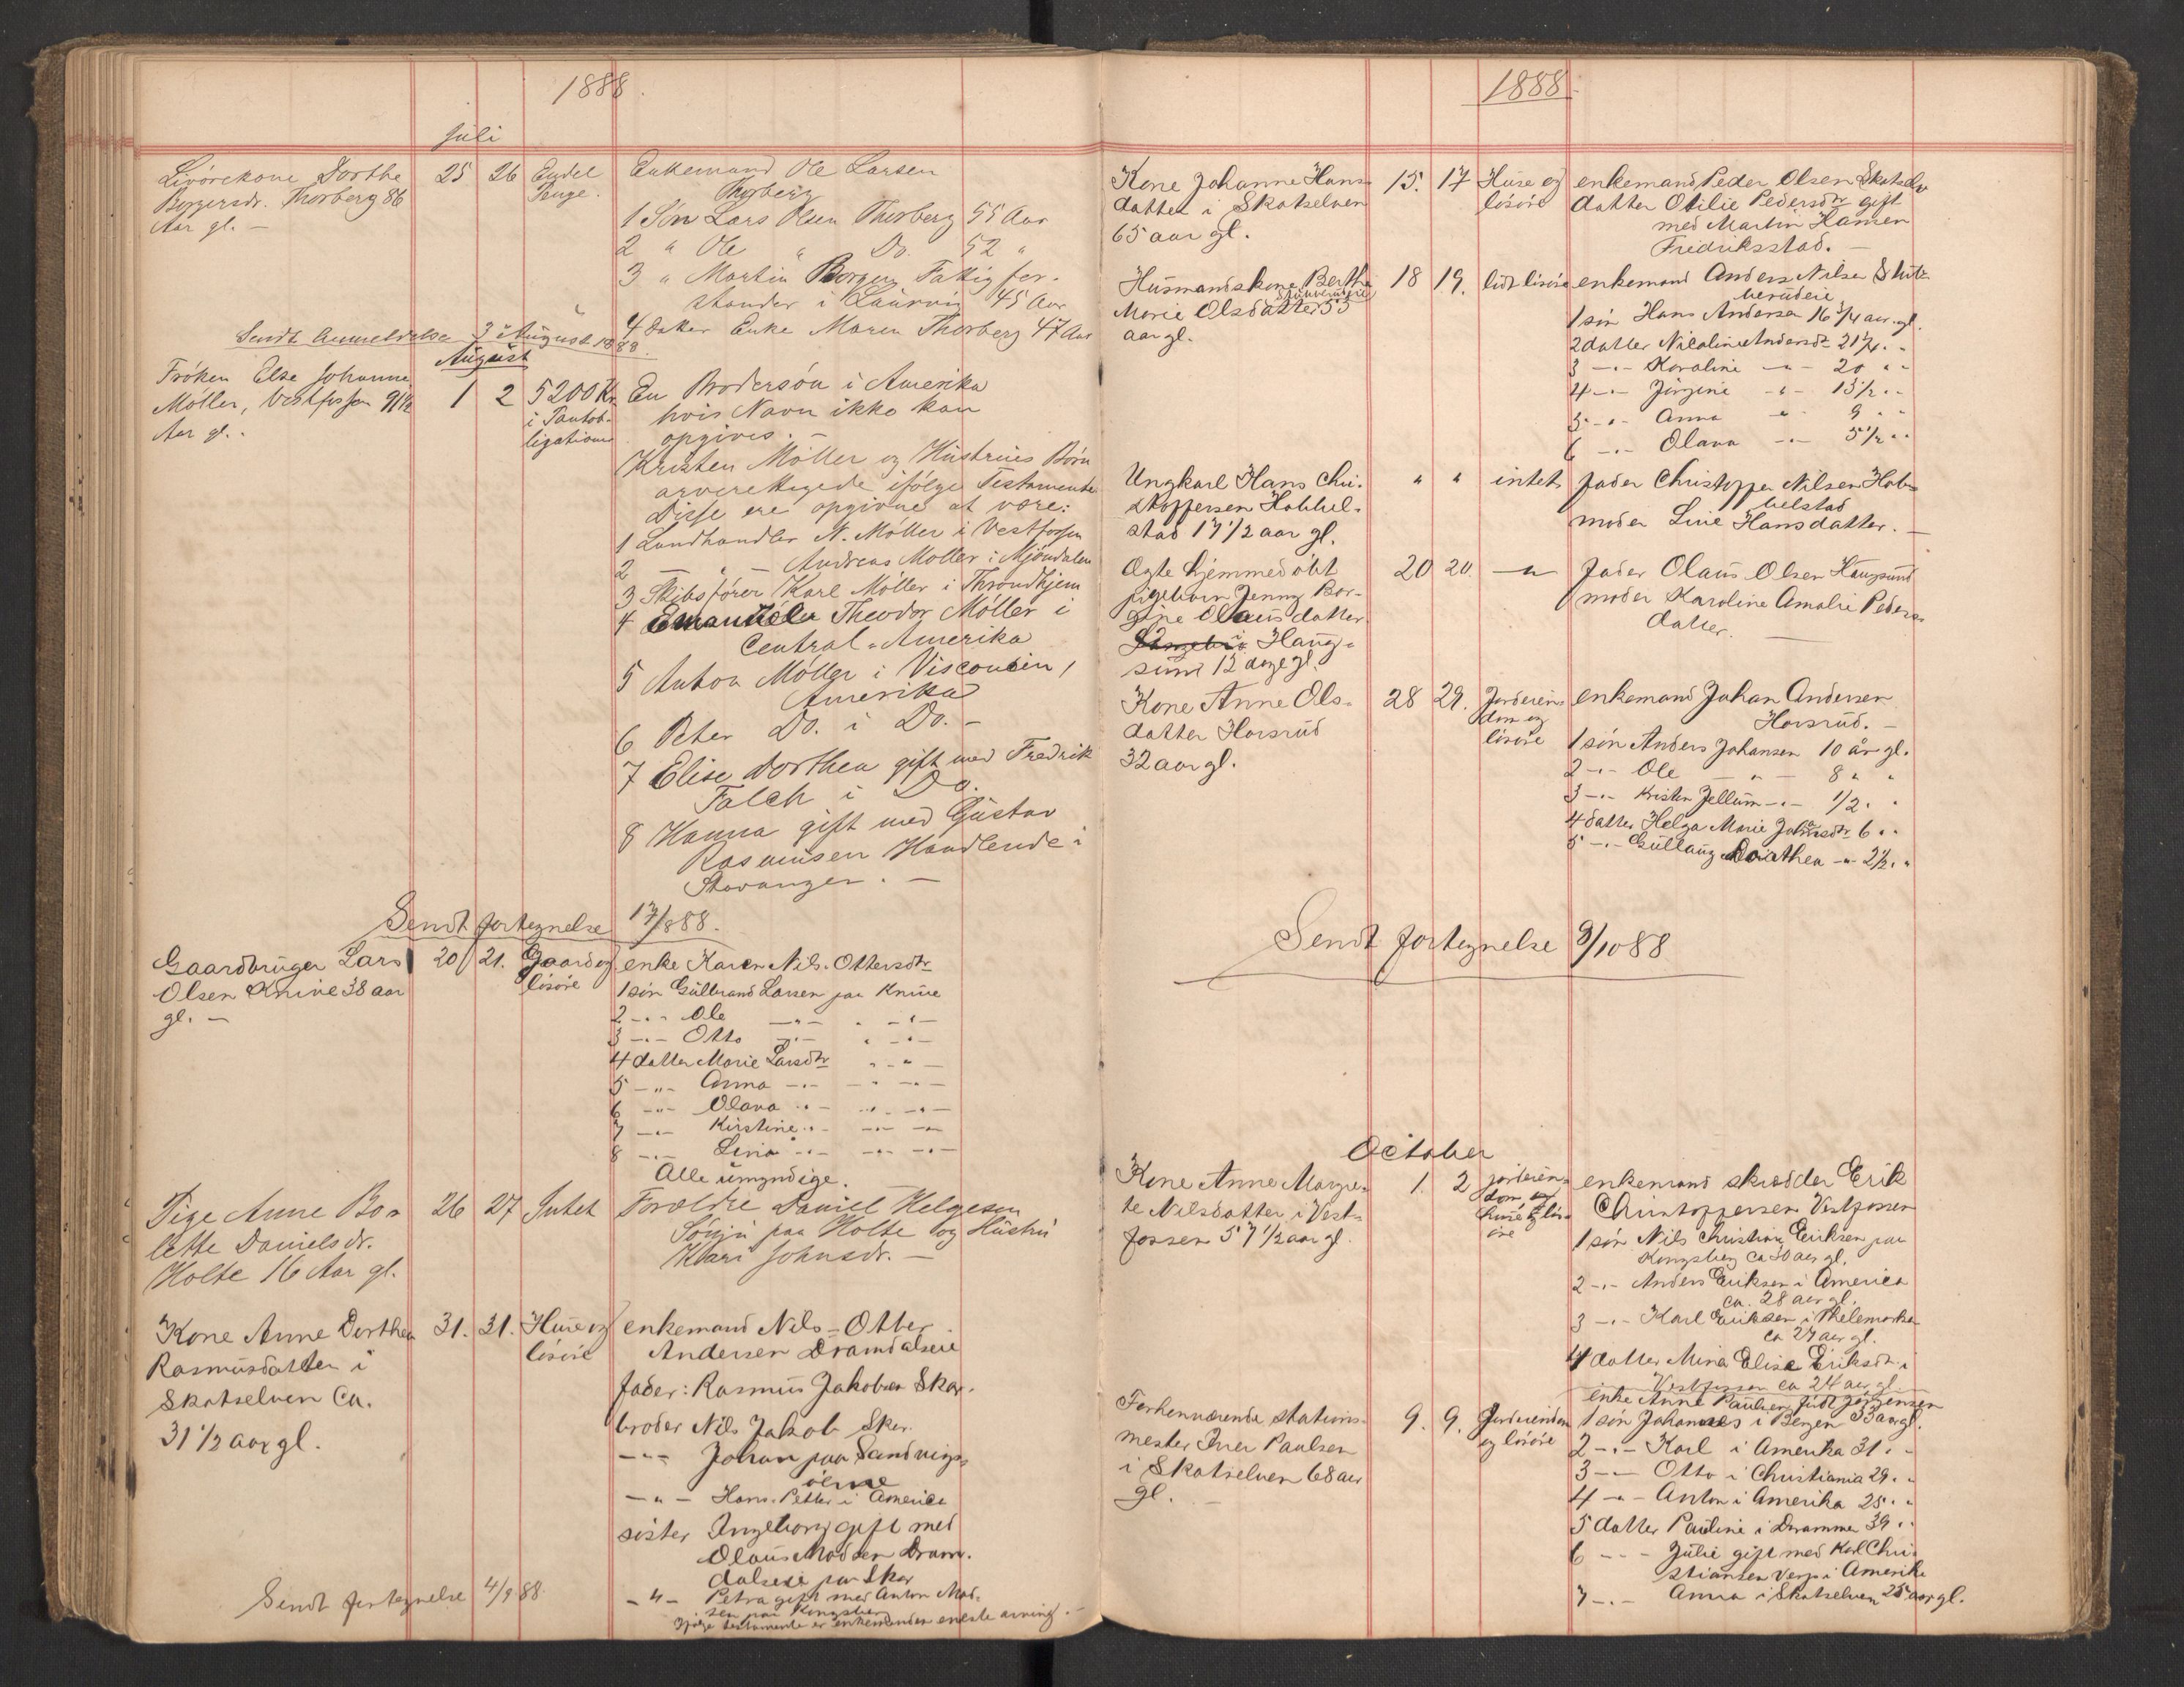 1888.
Juli
Livörekone Dorthe 25 26 Endel Enkemand Ole Larsen
Borgersdr. Thorberg 86 Penge. Thorberg
Aar gl. — 1 Sön Lars Olsen Thorberg 55 Aar
2 " Ole " Do. 52 "
3 " Martin Borgen Fattigfor-
stander i Laurvig 45 Aar
4 Datter Enke Maren Thorberg 47 Aar
Sendt Anmeldelse 3 August 1888.
August
Fröken Else Johanne 1 2 5200 Kr. En Brodersön i Amerika
Möller, Vestfossen 91½ i Pantob- hvis Navn ikke kan
Aar gl. - ligationer opgives. —
Kristen Möller og Hustrues Börn
arverettigede ifölge Testamente
Disse ere opgivne at være:
1 Landhandler N. Möller i Vestfossen
2 — " — Andreas Möller i Mjöndalen
3 Skibsförer Karl Möller i Throndhjem
4 Theodor Möller i
Central-Amerika
5 Anton Möller i Visconsin,
Amerika
6 Peter Do. i Do. —
7 Elise Dorthea gift med Fredrik
Falch i Do.
8 Hanna gift med Gustav
Rasmusen Handlende i
Stavanger. —
Sendt fortegnelse 17/8 88.
Gaardbruger Lars 20 21. Gaard og enke Karen Nils-Ottersdtr
Olsen Knive 38 aar lösöre 1 sön Gulbrand Larsen paa Knive
gl. — 2 -"- Ole —"— " —"—
3 -"- Otto —"— " —"—
4 datter Marie Larsdtr " - " —
5 -"- Anna -"- -"- -"-
6 -"- Olava -"- -"- -"-
7 -"- Kirstine -"- -"- -"-
8 -"- Lina -"- -"- -"-
Alle umyndige.
Pige Anne Bo- 26 27 Intet Forældre Daniel Helgesen
lette Danielsdr. paa Holte og Hustru
Holte 16 Aar gl. Kari Johnsdr. —
Kone Anne Dorthea 31. 31. Huse og enkemand Nils-Otter
Rasmusdatter i lösöre Andersen Dramdalseie
Skotselven Ca. fader: Rasmus Jakobsen Skar.
31 ½ aar gl. broder Nils Jakob Skar.
-"- Johan paa Sandvigs-
öerne
-"- Hans-Petter i America
sister Ingeborg gift med
Olaus Madsen Dram-
dalseie paa Skar
-"- Petra gift med Anton Mad-
sen paa Kongsberg
Sendt fortegnelse 4/9 88. Ifølge testamente er enkemanden eneste arving. —
1888.
Kone Johanne Hans- 15. 17 Huse og enkemand Peder Olsen Skotselv
datter i Skotselven lösöre datter Otilie Pedersdtr gift
65 aar gl. med Martin Hansen
Fredriksstad. —
Husmandskone Berthe 18 19. lidt lösöre enkemand Anders Nilsen
Marie Olsdatter 53
aar gl. 1 sön Hans Andersen 16 ¾ aar gl.
2 datter Nicoline Andersdtr 21¼ " "
3 -"- Karoline -"- 20 " "
4 -"- Jörgine -"- 13½ " "
5 -"- Anna " 9 " "
6 -"- Olava -"- 5½ " "
Ungkarl Hans Chri- " " intet fader Christopher Nilsen Hob-
stoffersen Hobbel- belstad
stad 17 1/2 aar gl. moder Line Hansdatter. —
Ægte hjemmedöbt 20 20. —"— fader Olaus Olsen Haugsund
pigebarn Jenny Bor- moder Karoline Amalie Peders-
gine Olausdatter datter. —
i Haug-
sund 12 dage gl.
Kone Anne Ols- 28 29. Jordeien- enkemand Johan Andersen
datter Horsrud dom og Horsrud. —
32 aar gl. lösöre 1 sön Anders Johansen 10 år gl.
2 -"- Ole — " — 8 " "
3 -"- Kristen Jellum -"- 1/2 " "
4 datter Helga Marie Johansdtr 6 " "
5 -"- Gullaug Dorthea -"- 2½ " "
Sendt fortegnelse 8/10 88
October
Kone Anne Margre- 1. 2 jordeien- enkemand skrædder Erik
te Nilsdatter i Vest- dom og Christoffersen Vestfossen
fossen 57 1/2 aar gl. huse & lös- 1 sön Nils Christian Eriksen paa
öre Kongsberg ca 30 aar gl.
2 -"- Anders Eriksen i America
ca. 28 aar gl.
3 -"- Karl Eriksen i Thelemarken
ca 27 aar gl.
4 datter Mina Elise Eriksdtr i
Vestfossen ca 24 aar gl.
enke Anne Paulsen født Jörgensen
Forhenværende stations- 9. 9. Jordeiendom 1 sön Johannes i Bergen 33 aar gl.
mester Iver Paulsen og lösöre 2 -"- Karl i Amerika 31 " -
i Skotselven 68 aar 3 -"- Otto i Christiania 29 " "
gl. — 4 -"- Anton i Amerika 25 " "
5 datter Pauline i Drammen 39 " "
6 -"- Julie gift med Karl Chri-
stiansen Verp i Amerika
7 -"- Anna i Skotselven 25 aar gl.